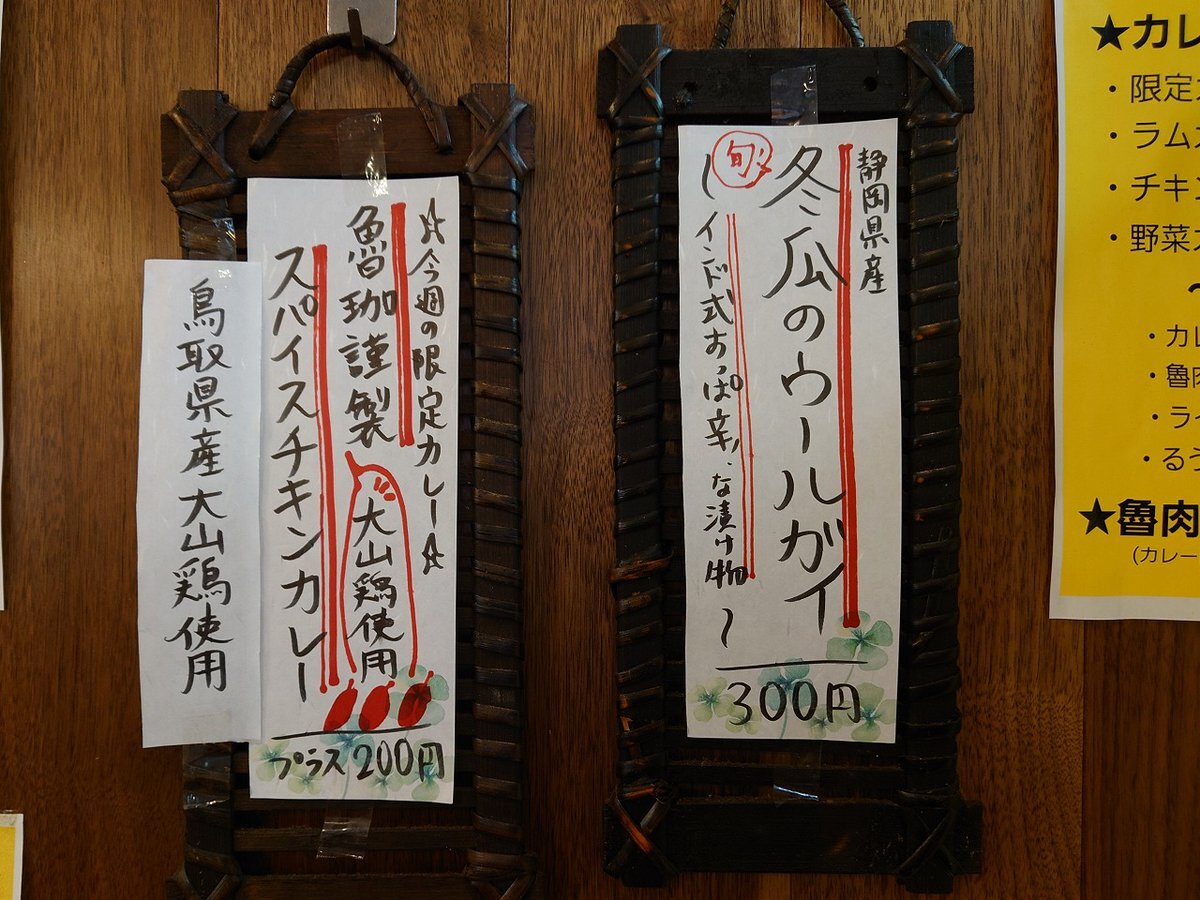 ☆今週の限定カレー☆
魯珈謹製
大山鶏使用
スパイスチキンカレー
プラス200円
鳥取県産大山鶏使用
静岡県産
冬瓜のウールガイ
旬
〜インド式すっぱ辛い漬け物〜
300円
★カレ
・限定
・ラム
・チキン
・野菜
〜
・カレ
・魯肉
・ライ
・るう
★魯肉
(カレー